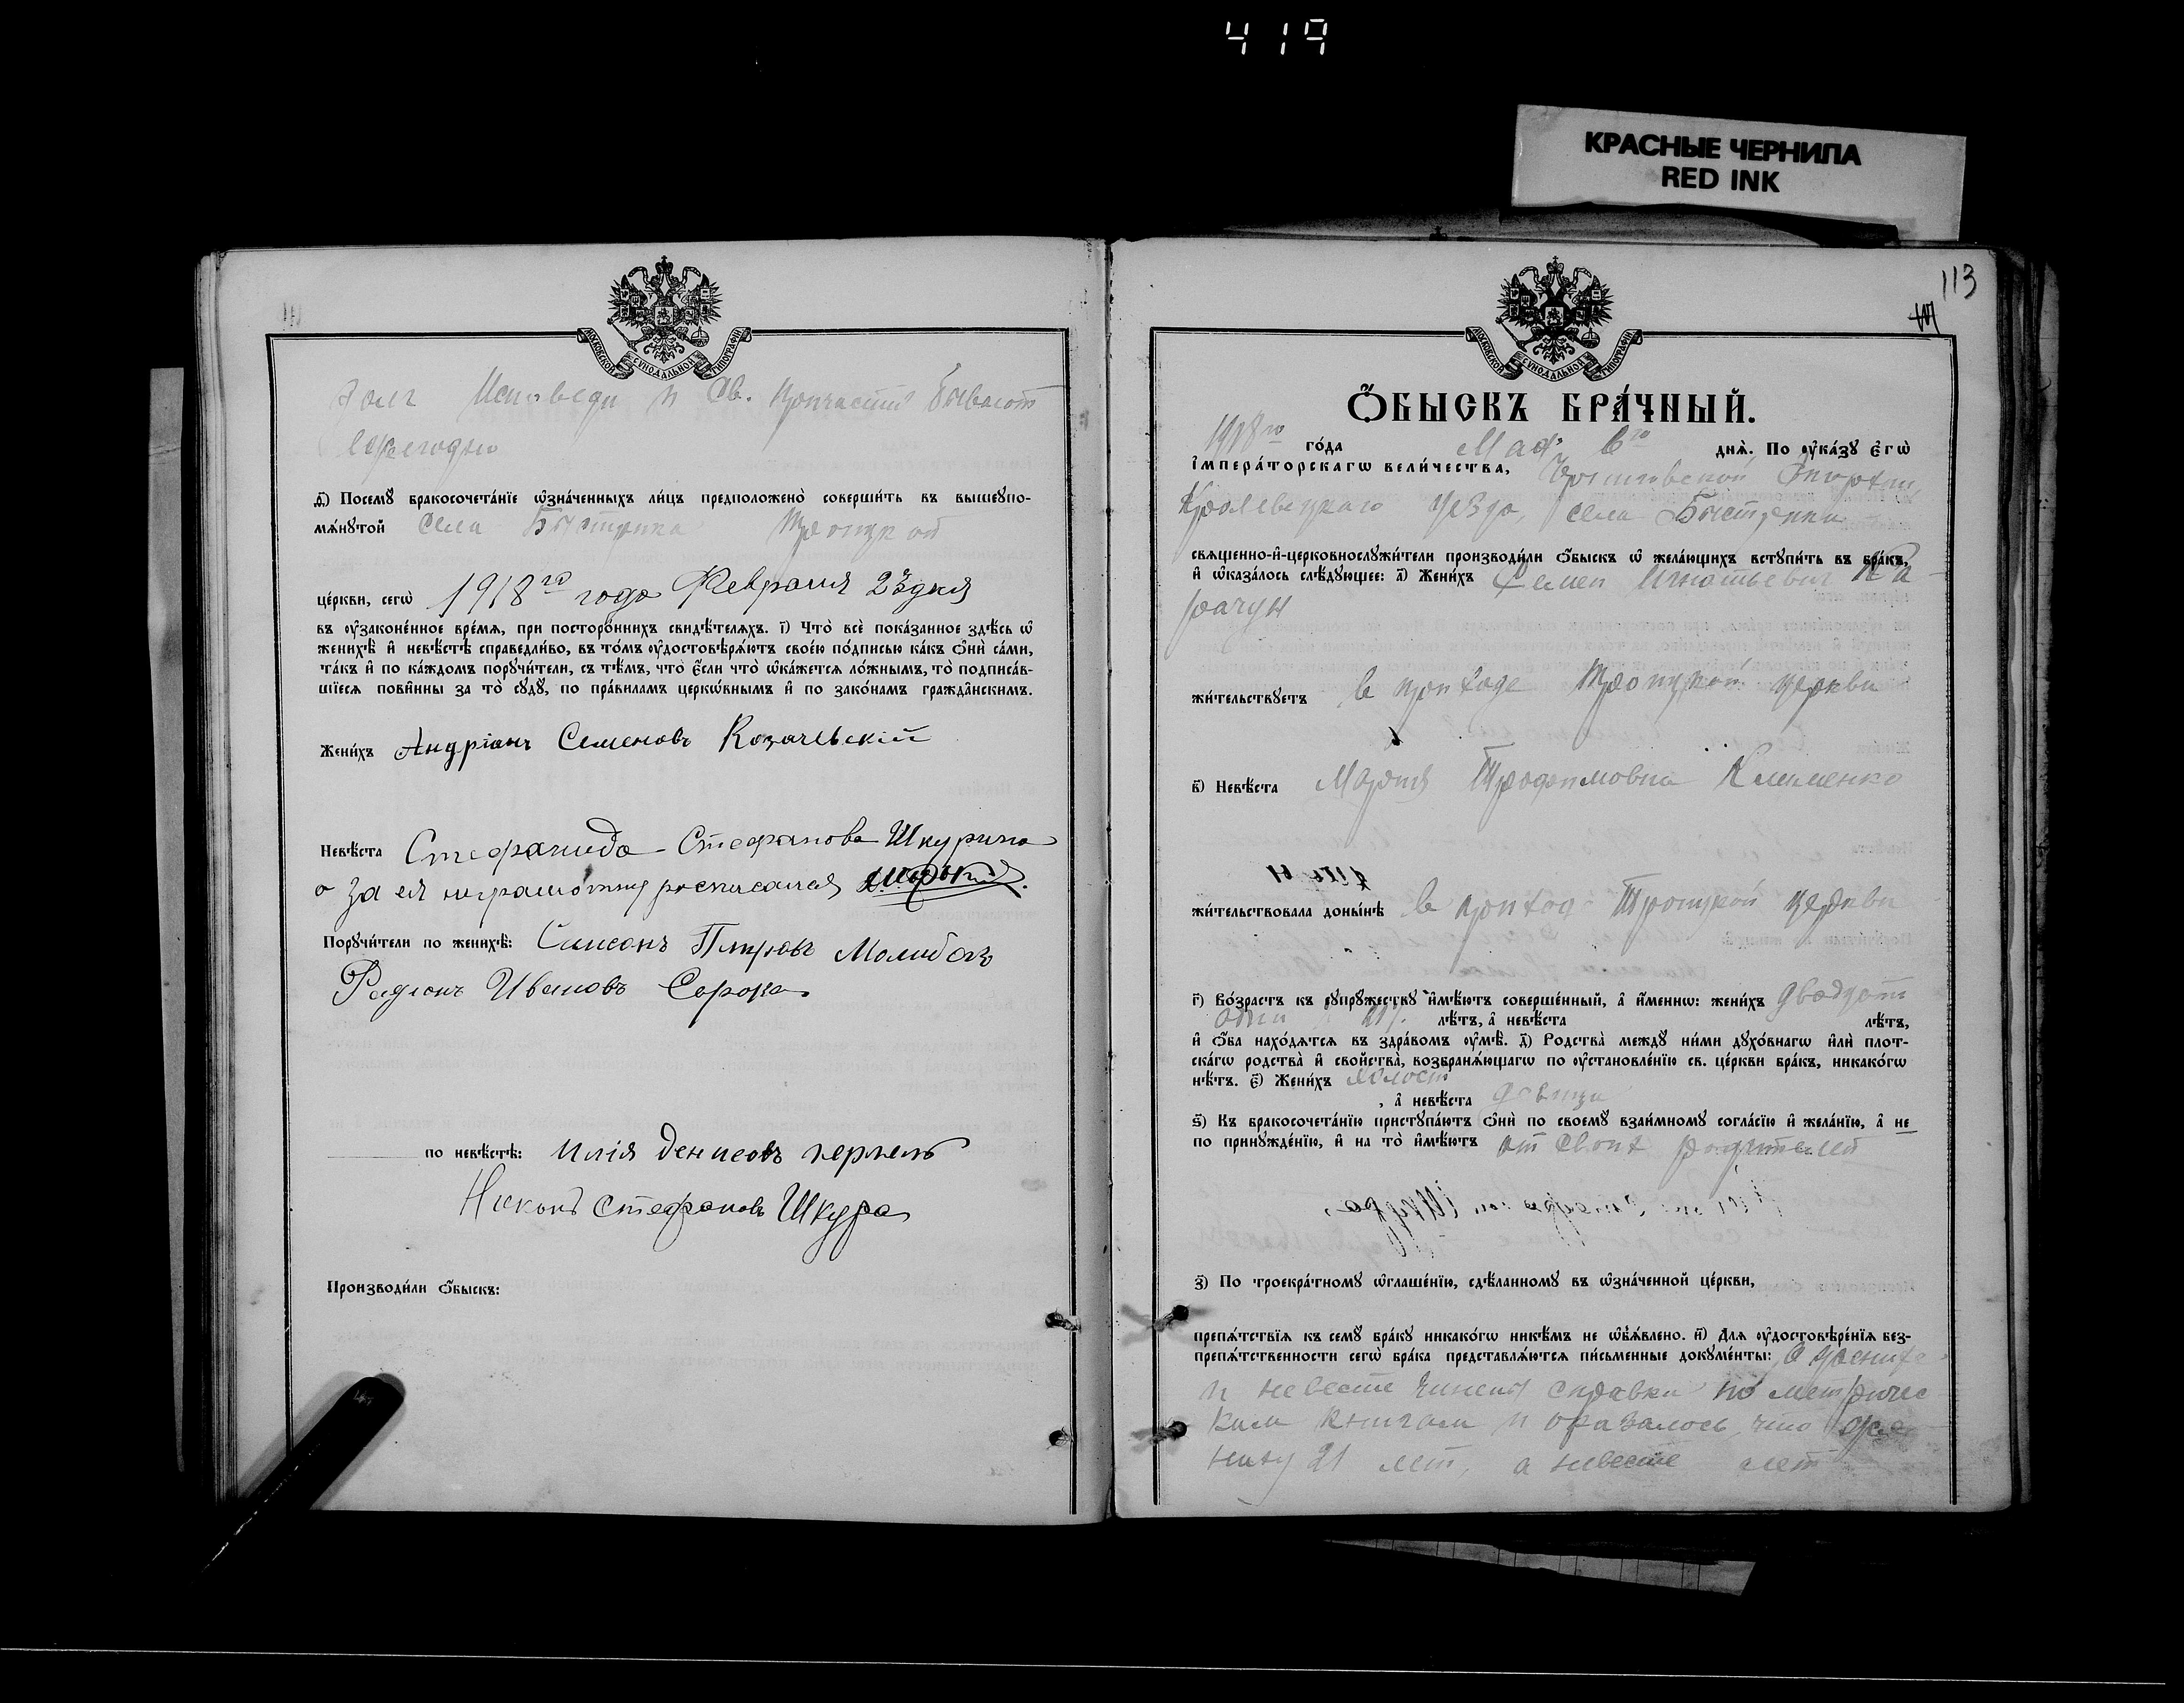 419
КРАСНЫЕ ЧЕРНИЛА
RED INK
МОСКОВСКОЙ СѴНОДАЛЬНОЙ ТИПОГРАФІИ
Исповеди и Св. Причастия бывают
ежегодно
д҃) Посемꙋ бракосочета́нїе ѡ҆зна́ченныхъ ли́цъ предположено̀ соверши́ть въ вышеꙋпо-
мѧ́нꙋтой села Быстрика Троицкой
це́ркви, сегѡ̀ 1918го года Февраля 23 дня
въ ᲂу҆законе́нное вре́мѧ, при посторо́ннихъ свидѣ́телѧхъ. і҃) Что̀ всѐ пока́занное здѣ́сь ѡ҆
женихѣ̀ и҆ невѣ́стѣ справедли́во, въ то́мъ ᲂу҆достовѣрѧ́ютъ свое́ю по́дписью ка́къ ѻ҆нѝ са́ми,
та́къ и҆ по ка́ждомъ порꙋчи́тели, съ тѣ́мъ, что̀ є҆́сли что̀ ѡ҆ка́жетсѧ ло́жнымъ, то̀ подписа́в-
шїесѧ пови́нны за то̀ сꙋдꙋ̀, по пра́виламъ церкѡ́внымъ и҆ по зако́намъ гражда́нскимъ.
Жени́хъ Андріанъ Семеновъ Козачевскій
Невѣ́ста Стефанида Стефанова Шкурина
а за ея неграмотну росписался
Порꙋчи́тели по женихѣ̀: Симеонъ Петровъ
Радіонъ Ивановъ Сорока
по невѣ́стѣ: Илія Денисовъ
Никонъ Стефановъ Шкура
Производи́ли ѻ҆́быскъ:
113
МОСКОВСКОЙ СѴНОДАЛЬНОЙ ТИПОГРАФІИ
Ѻ҆́БЫСКЪ БРА́ЧНЫЙ.
1918го го́да Мая 6го днѧ̀. По ᲂу҆ка́зꙋ є҆гѡ̀
і҆мпера́торскагѡ вели́чества, Черниговской Епархии,
Кролевецкаго уезда, села Быстрика
свѧщенно-и҆-церковнослꙋжи́тели производи́ли ѻ҆́быскъ ѡ҆ жела́ющихъ встꙋпи́ть въ бра́къ,
и҆ ѡ҆каза́лось слѣ́дꙋющее: а҃) Жени́хъ Семен Игнатьевич Ка-
рачун
жи́тельствꙋетъ в приходе Троицкой церкви
в҃) Невѣ́ста Мария Трофимовна Клименко
жи́тельствовала доны́нѣ в приход Троицкой церкви
г҃) Во́зрастъ къ сꙋпрꙋ́жествꙋ и҆мѣ́ютъ соверше́нный, а҆ и҆́менно: жени́хъ двадцати
один 21 лѣ́тъ, а҆ невѣ́ста лѣ́тъ,
и҆ ѻ҆́ба нахо́дѧтсѧ въ здра́вомъ ᲂу҆мѣ̀. д҃) Родства̀ междꙋ̀ ни́ми дꙋхо́внагѡ и҆лѝ плот-
ска́гѡ родства̀ и҆ сво́йства̀, возбранѧ́ющагѡ по ᲂу҆становле́нїю св. це́ркви бра́къ, никако́гѡ
нѣ́тъ. є҃) Жени́хъ холост
, а҆ невѣ́ста девица
ѕ҃) Къ бракосочета́нїю пристꙋпа́ютъ ѻ҆нѝ по своемꙋ̀ взаи́мномꙋ согла́сїю и҆ жела́нїю, а҆ не
по принꙋжде́нїю, и҆ на то̀ и҆мѣ́ютъ от своих родителей
з҃) По троекра́тномꙋ ѡ҆глаше́нїю, сдѣ́ланномꙋ въ ѡ҆зна́ченной це́ркви,
препѧ́тствїѧ къ семꙋ̀ бра́кꙋ никако́гѡ никѣ́мъ не ѡ҆б̾ѧ́влено. и҃) Длѧ ᲂу҆достовѣре́нїѧ без-
препѧ́тственности сегѡ̀ бра́ка представлѧ́ютсѧ пи́сьменные докꙋме́нты: О женихе
и невесте чинены справки по метричес
ким книгам и оказалось, что же-
ниху 21 лет, а невесте лет